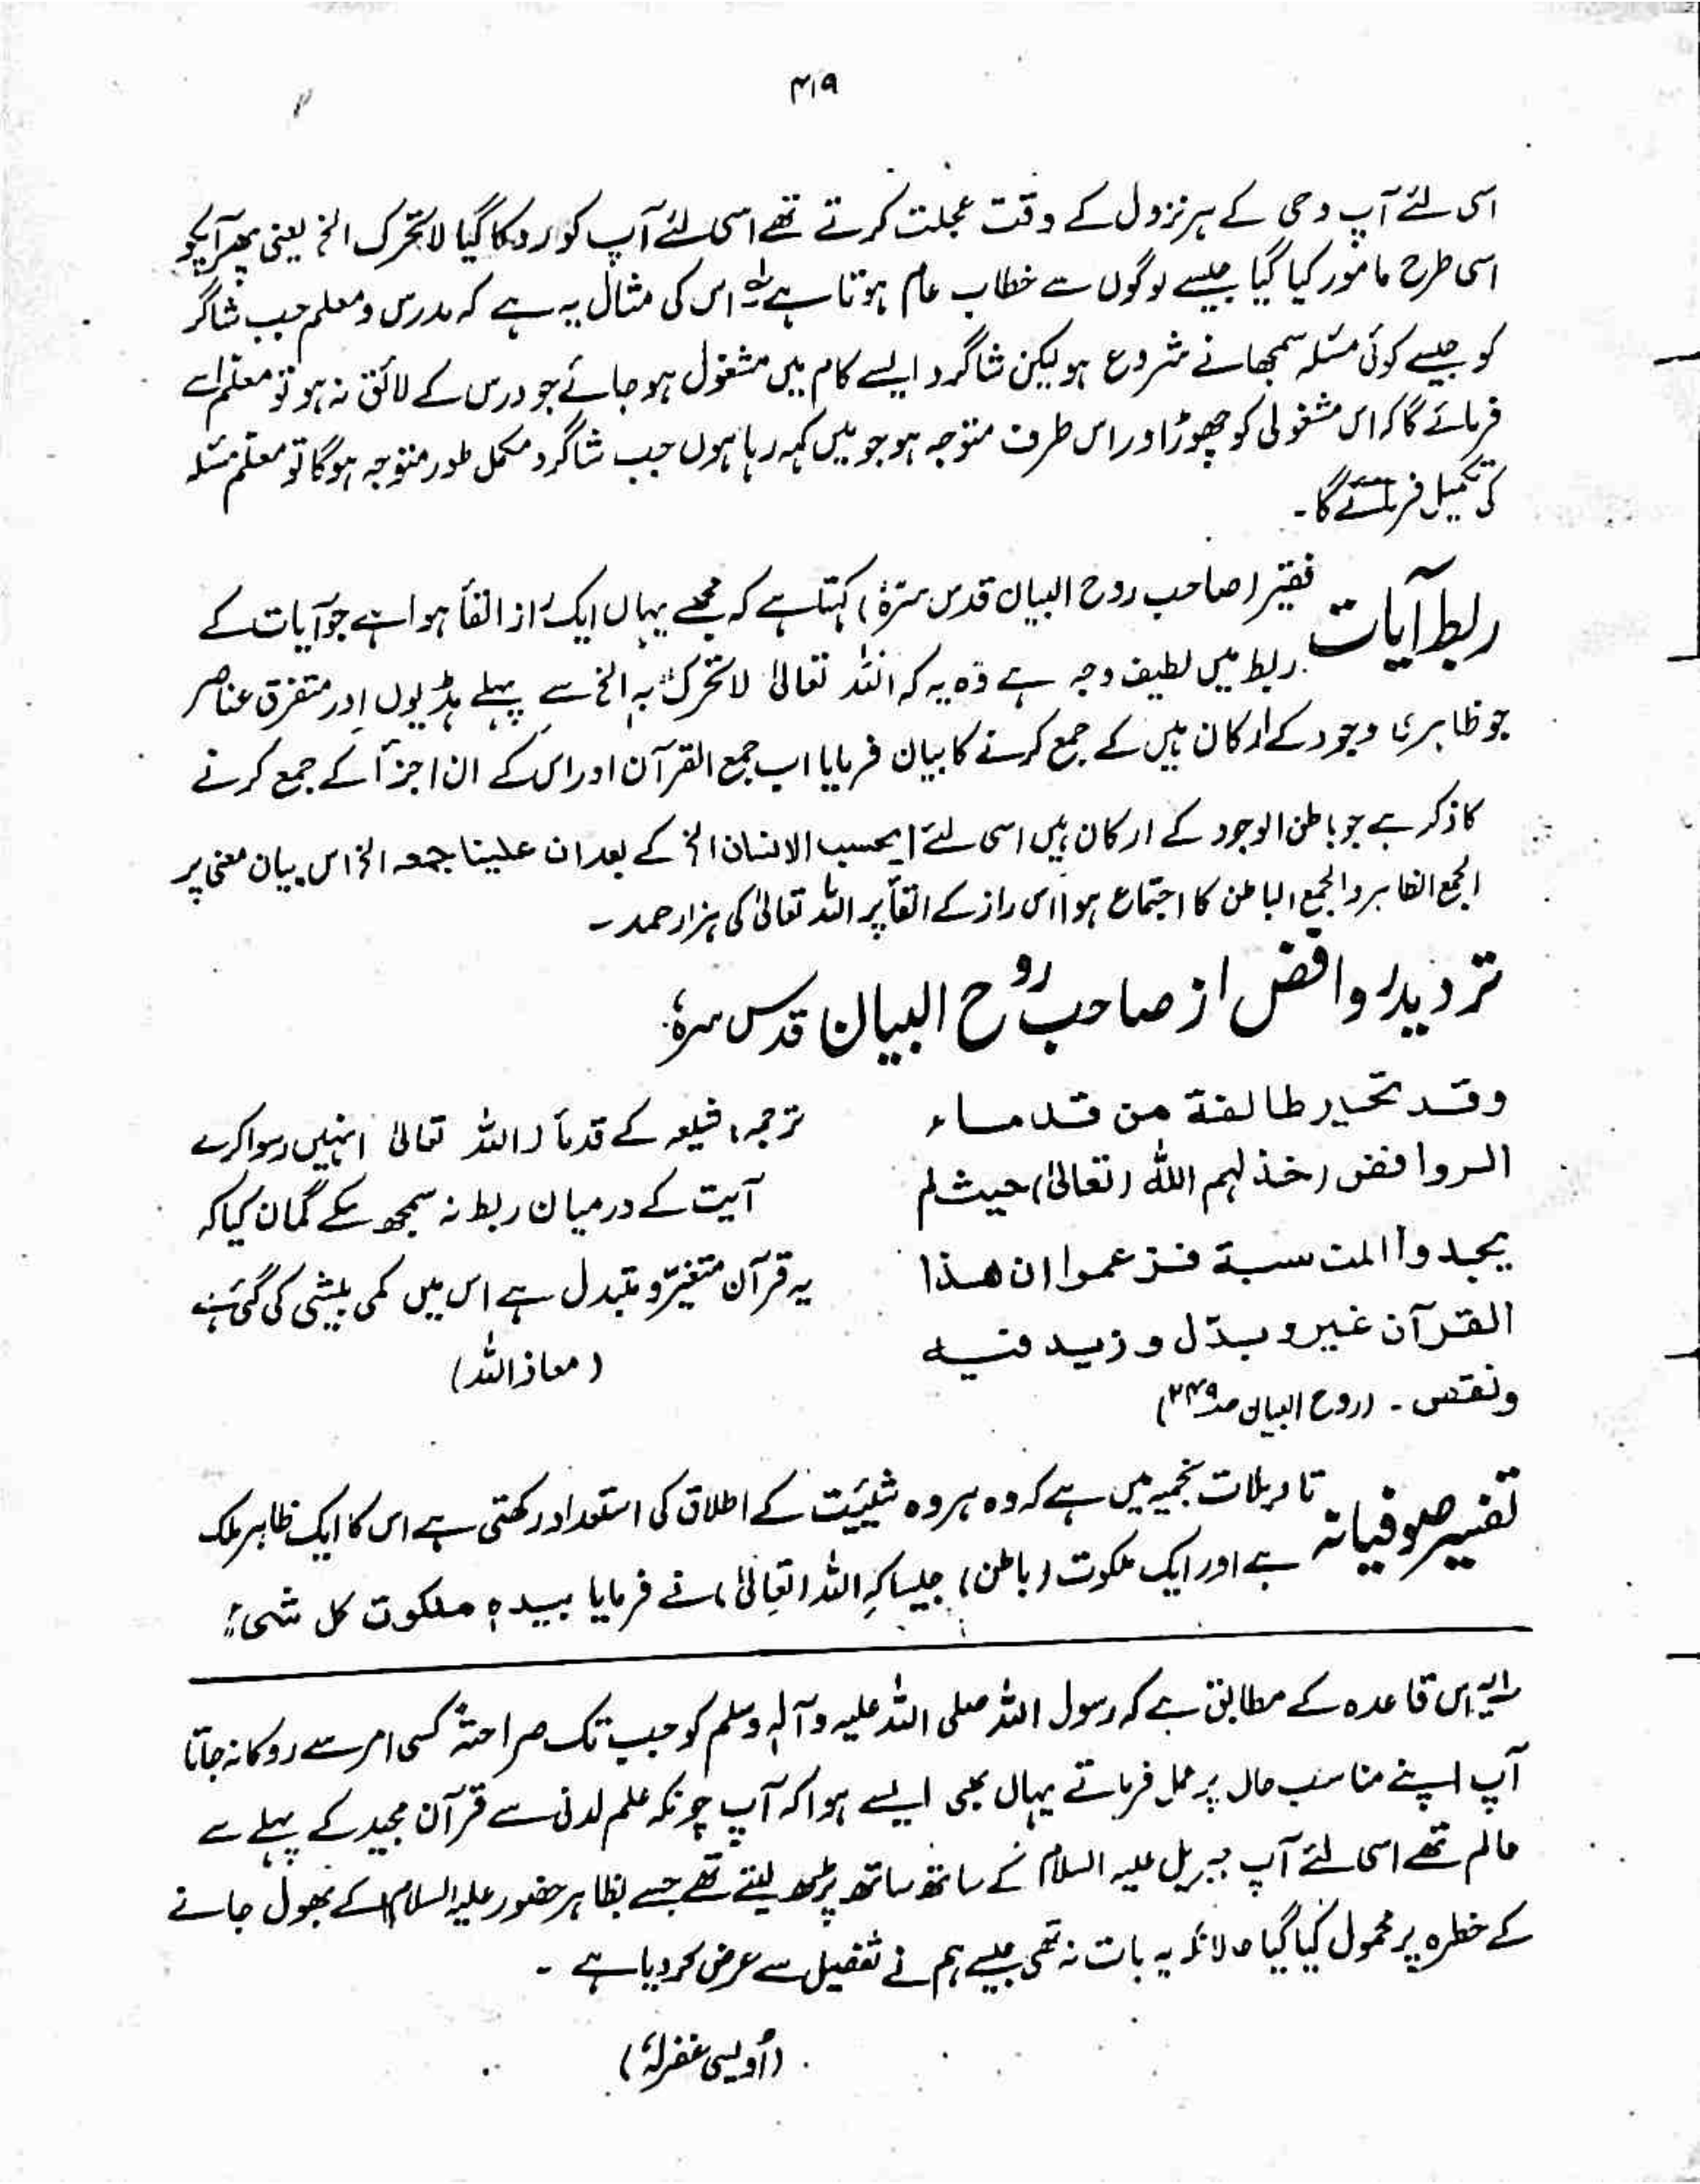 ۳۱۹
اسی لئے آپ وحی کے ہر نزول کے وقت عجلت کرتے تھے اسی لئے آپ کو روکا گیا لا تحرک الخ یعنی پھر آپکو
اسی طرح مامور کیا گیا جیسے لوگوں سے خطاب عام ہوتا ہے لہ اس کی مثال یہ ہے کہ مدرس و معلم جب شاگر
کو جیسے کوئی مسئلہ سمجھانے شروع ہو لیکن شاگرد ایسے کام میں مشغول ہو جائے جو درس کے لائق نہ ہو تو معلم اسے
فرمائے گا کہ اس مشغولی کو چھوڑ اور اس طرف متوجہ ہو جو میں کہہ رہا ہوں جب شاگرد مکمل طور متوجہ ہوگا تو معلم مسئلہ
کی تکمیل فرمائے گا۔
ربط آیات فقیر (صاحب روح البیان قدس سرہٗ) کہتا ہے کہ مجھے یہاں ایک راز القأ ہوا ہے جو آیات کے
ربط میں لطیف وجہ ہے وہ یہ کہ اللہ تعالیٰ لا تحرک بہ الخ سے پہلے ہڈیوں اور متفرق عناصر
جو ظاہری وجود کے ارکان ہیں کے جمع کرنے کا بیان فرمایا اب جمع القرآن اور اس کے ان اجزأ کے جمع کرنے
کا ذکر ہے جو باطن الوجود کے ارکان ہیں اسی لئے ایحسب الانسان الخ کے بعد ان علینا جمعہ الخ اس بیان معنی پر
الجمع الظاہر والجمع الباطن کا اجتماع ہوا اس راز کے القأ پر اللہ تعالیٰ کی ہزار حمد۔
تردید روافض از صاحب روح البیان قدس سرہٗ
وقد تحیر طائفة من قدماء
الروافض (خذلہم اللہ (تعالیٰ) حیث لم
یجدوا المناسبة فزعموا ان ھذا
القرآن غیر وبدّل وزید فیه
ونقص۔ (روح البیان صـ۲۴۹)
ترجمہ: شیعہ کے قدمأ (اللہ تعالیٰ انہیں رسوا کرے
آیت کے درمیان ربط نہ سمجھ سکے گمان کیا کہ
یہ قرآن متغیّر و متبدل ہے اس میں کمی بیشی کی گئی ہے
(معاذ اللہ)
تفسیر صوفیانہ تاویلات نجمیہ میں ہے کہ وہ ہر وہ شیئیت کے اطلاق کی استعداد رکھتی ہے اس کا ایک ظاہر ملک
ہے اور ایک ملکوت (باطن) جیسا کہ اللہ (تعالیٰ) نے فرمایا بیدہ ملکوت کل شیء
لہ یہ اس قاعدہ کے مطابق ہے کہ رسول اللہ صلی اللہ علیہ وآلہٖ وسلم کو جب تک صراحتہً کسی امر سے روکا نہ جاتا
آپ اپنے مناسب حال پر عمل فرماتے یہاں بھی ایسے ہوا کہ آپ چونکہ علم لدنی سے قرآن مجید کے پہلے سے
عالم تھے اسی لئے آپ جبریل علیہ السلام کے ساتھ ساتھ پڑھ لیتے تھے جسے بظاہر حضور علیہ السلام کے بھول جانے
کے خطرہ پر محمول کیا گیا حالانکہ یہ بات نہ تھی جیسے ہم نے تفصیل سے عرض کر دیا ہے۔
(اُویسی غفرلہٗ)